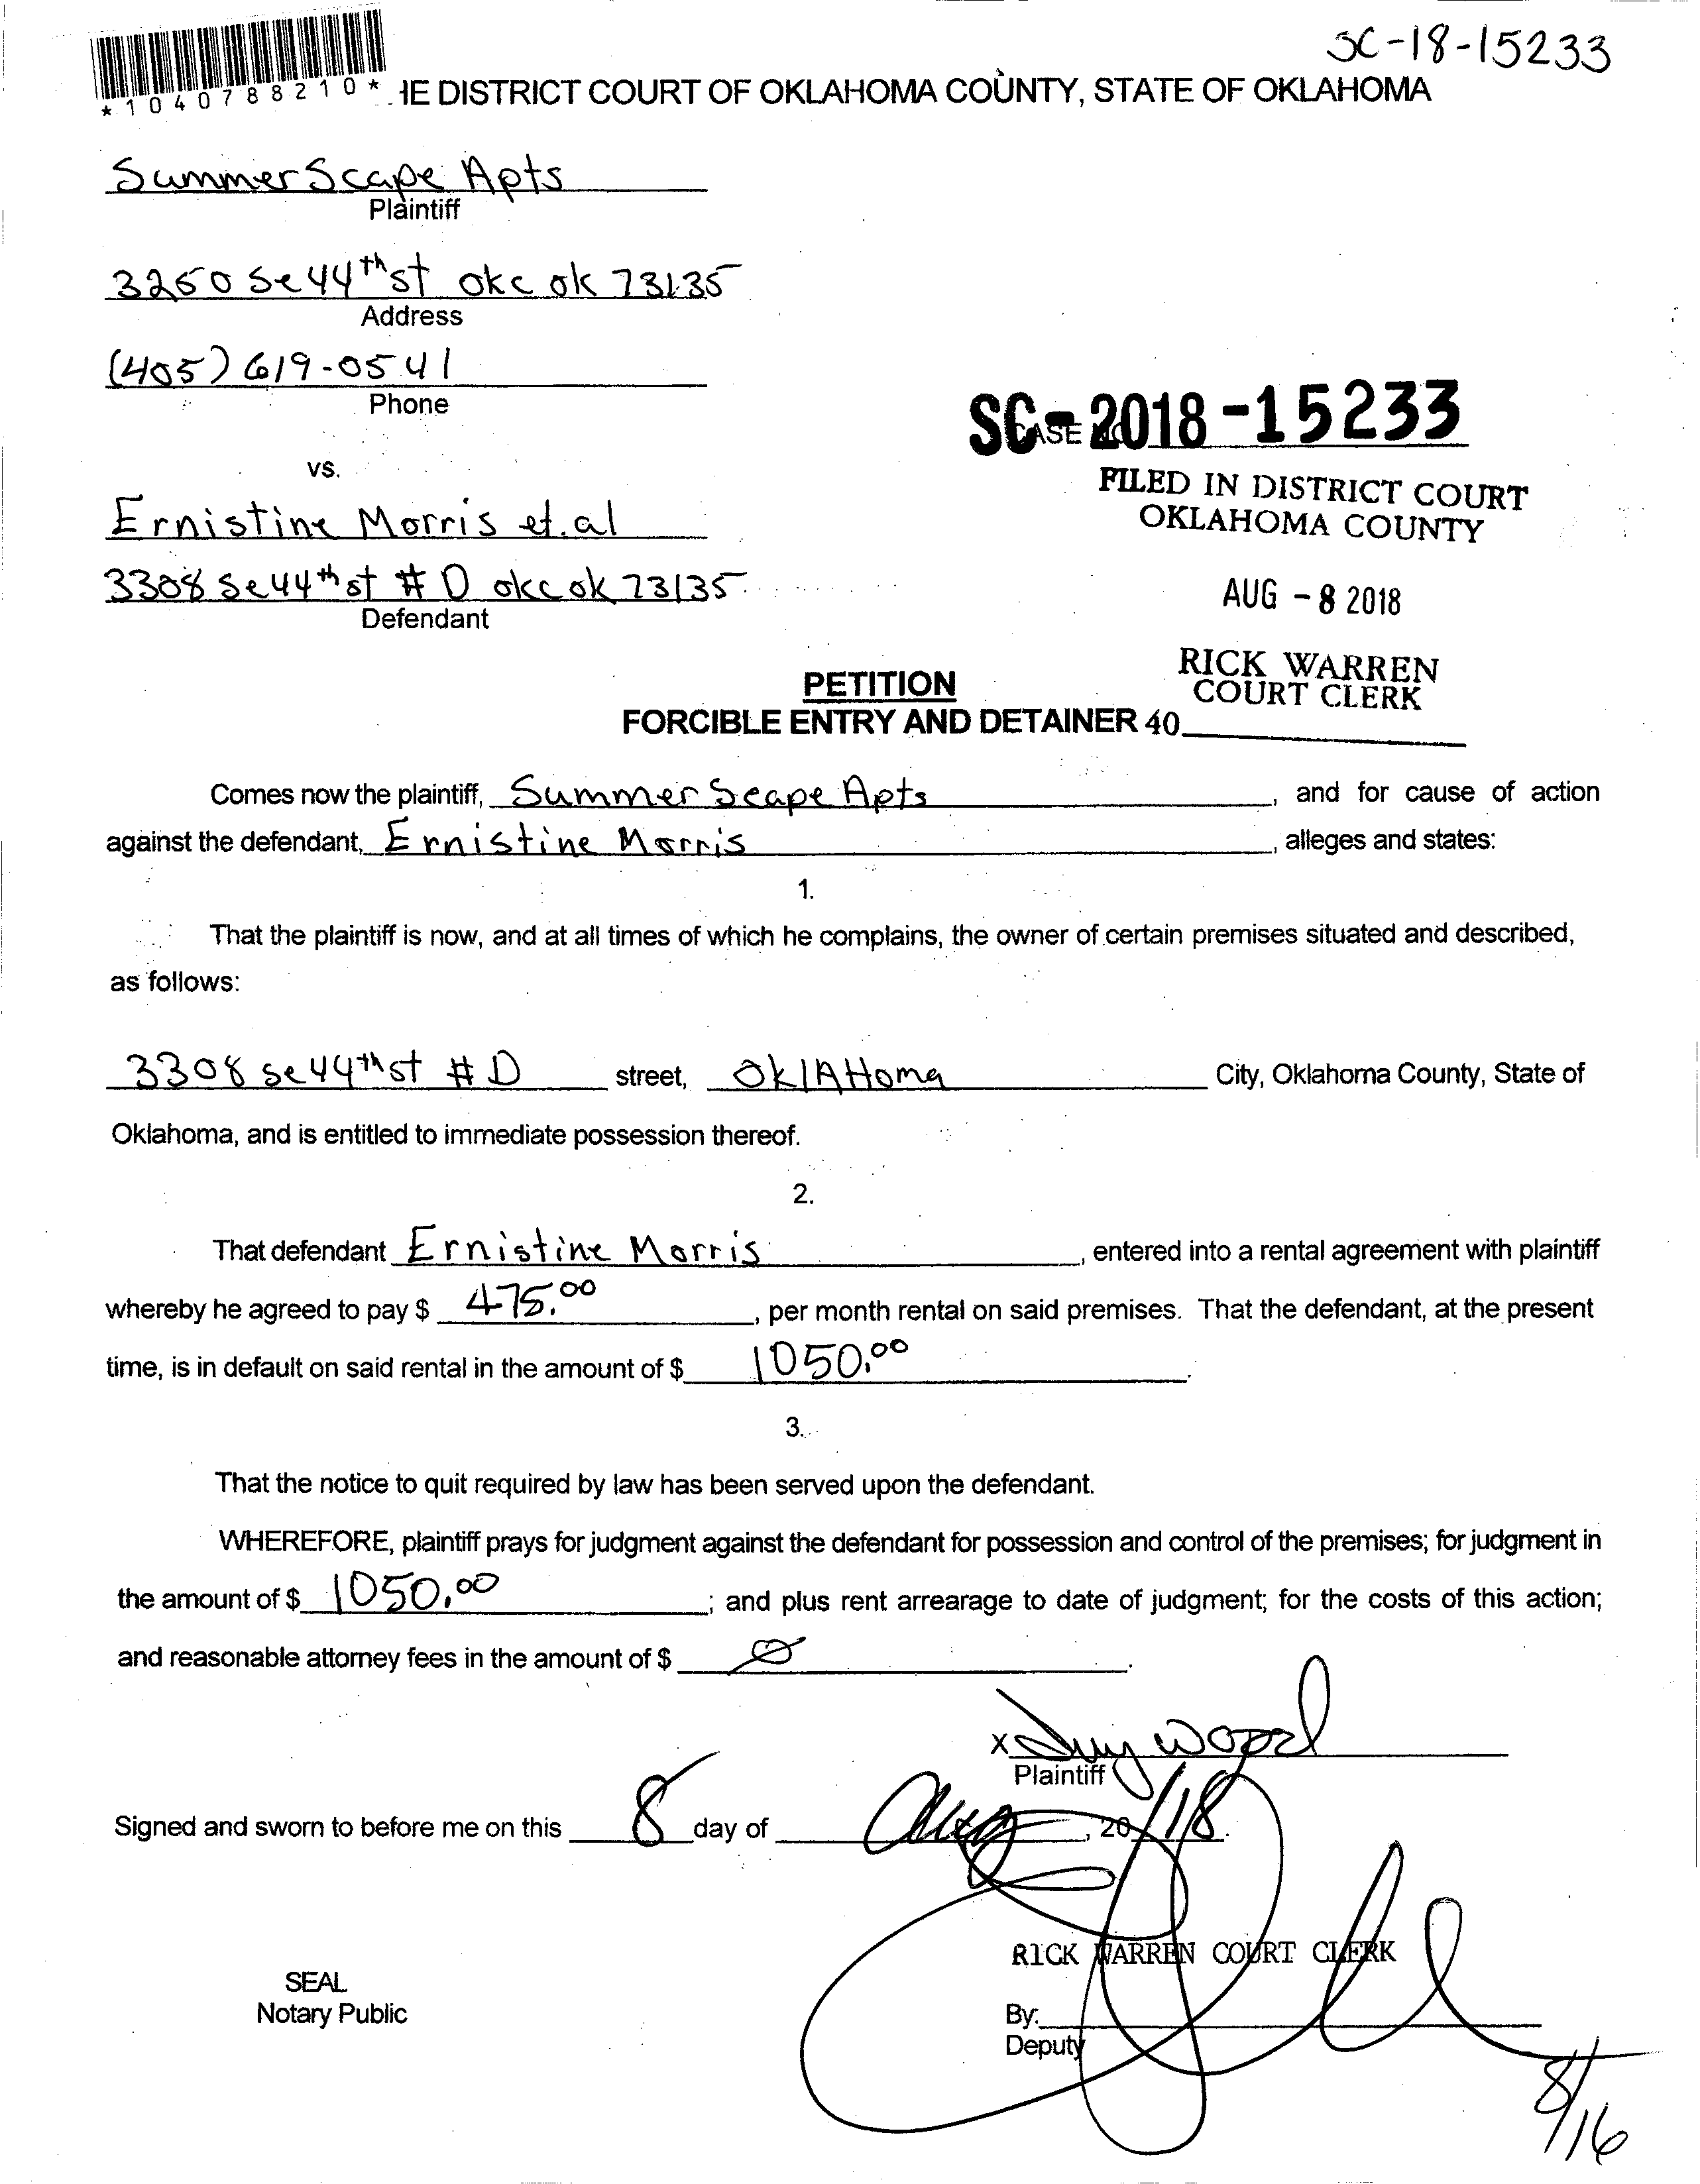 SC-18-15233
*1040788210* HE DISTRICT COURT OF OKLAHOMA COUNTY, STATE OF OKLAHOMA
SummerScape Apts
Plaintiff
3250 Se 44th st okc ok 73135
Address
(405) 619-0541
Phone
SC-2018-15233
CASE NO
vs.
FILED IN DISTRICT COURT
OKLAHOMA COUNTY
Ernistine Morris et.al
3308 Se 44th st # D okc ok 73135
Defendant
AUG - 8 2018
RICK WARREN
COURT CLERK
PETITION
FORCIBLE ENTRY AND DETAINER 40
Comes now the plaintiff, Summer Scape Apts, and for cause of action
against the defendant, Ernistine Morris, alleges and states:
1.
That the plaintiff is now, and at all times of which he complains, the owner of certain premises situated and described,
as follows:
3308 se 44th st # D street, OklAHoma City, Oklahoma County, State of
Oklahoma, and is entitled to immediate possession thereof.
2.
That defendant Ernistine Morris, entered into a rental agreement with plaintiff
whereby he agreed to pay $ 475.00, per month rental on said premises. That the defendant, at the present
time, is in default on said rental in the amount of $ 1050.00.
3.
That the notice to quit required by law has been served upon the defendant.
WHEREFORE, plaintiff prays for judgment against the defendant for possession and control of the premises; for judgment in
the amount of $ 1050.00; and plus rent arrearage to date of judgment; for the costs of this action;
and reasonable attorney fees in the amount of $ Ø.
X Wood
Plaintiff
Signed and sworn to before me on this 8 day of Aug, 20 18.
RICK WARREN COURT CLERK
SEAL
Notary Public
By:
Deputy
8/16